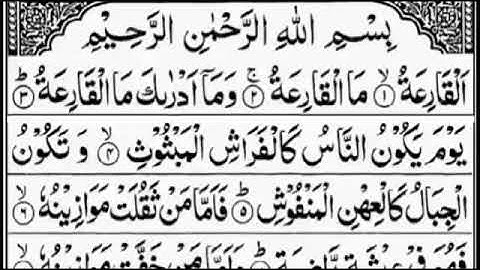 بِسْمِ اللهِ الرَّحْمٰنِ الرَّحِيْمِ
اَلْقَارِعَةُ ۙ﴿۱﴾ مَا الْقَارِعَةُ ۚ﴿۲﴾ وَمَاۤ اَدْرٰىكَ مَا الْقَارِعَةُ ؕ﴿۳﴾
يَوْمَ يَكُوْنُ النَّاسُ كَالْفَرَاشِ الْمَبْثُوْثِ ۙ﴿۴﴾ وَ تَكُوْنُ
الْجِبَالُ كَالْعِهْنِ الْمَنْفُوْشِ ؕ﴿۵﴾ فَاَمَّا مَنْ ثَقُلَتْ مَوَازِيْنُهٗ ۙ﴿۶﴾
فَهُوَ فِيْ عِيْشَةٍ رَّاضِيَةٍ وَاَمَّا مَنْ خَفَّتْ مَوَازِيْنُهٗ